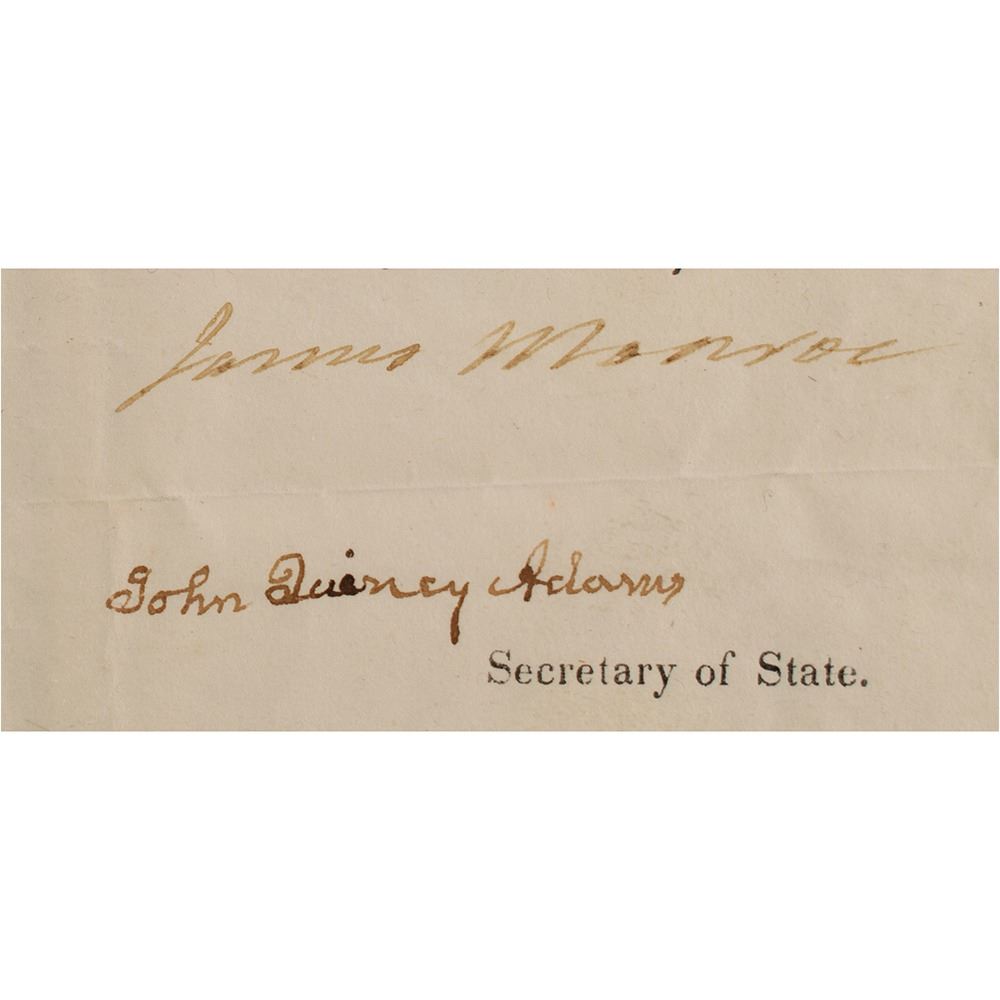 James Monroe
John Quincy Adams
Secretary of State.